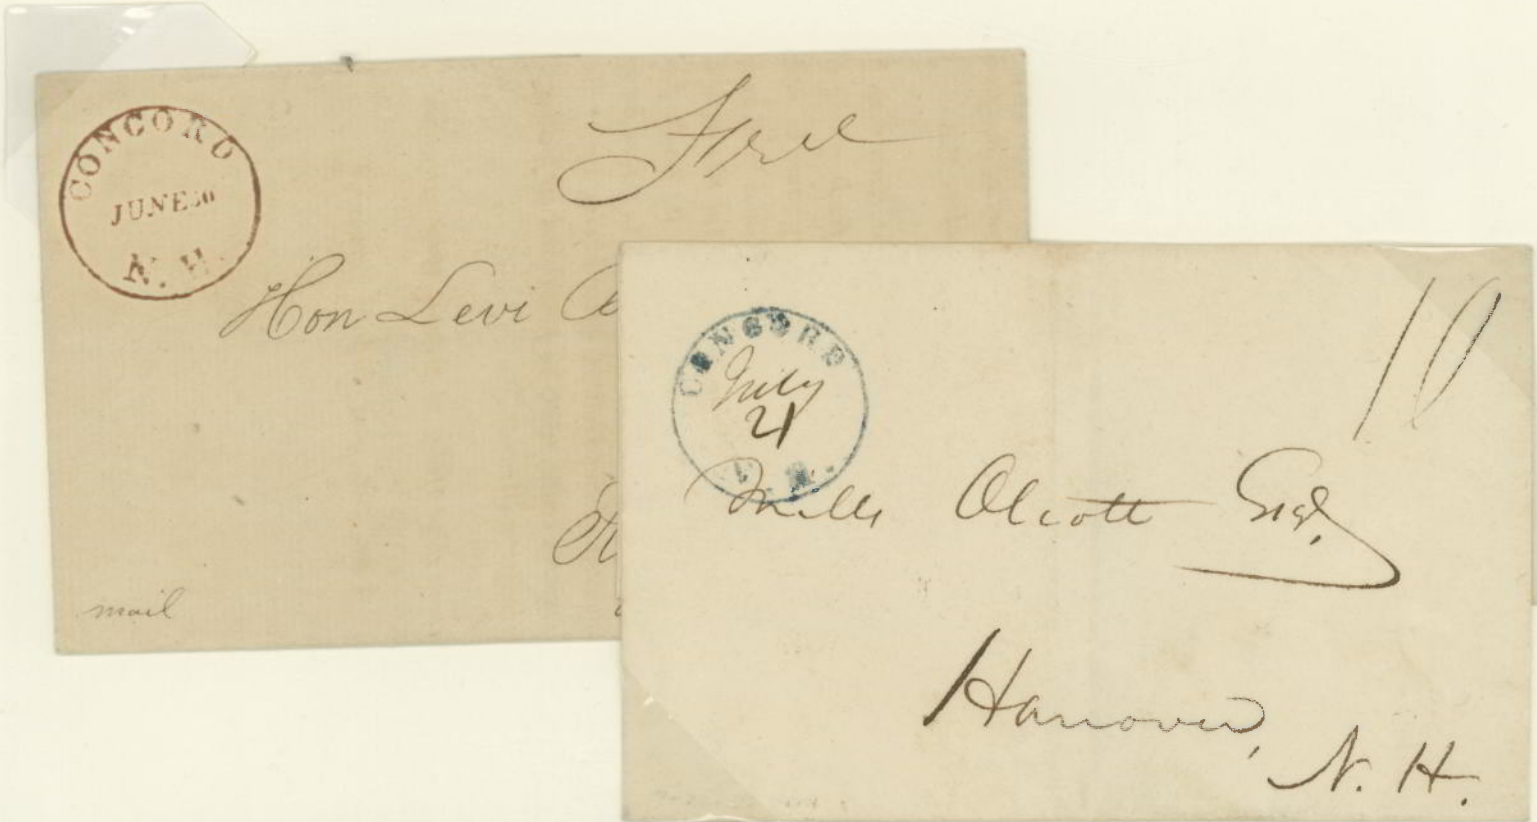 CONCORD
JUNE 30
N. H.
Free
Hon Levi
mail
CONCORD
July
21
N. H.
10
Mills Olcott Esq.
Hanover,
N. H.